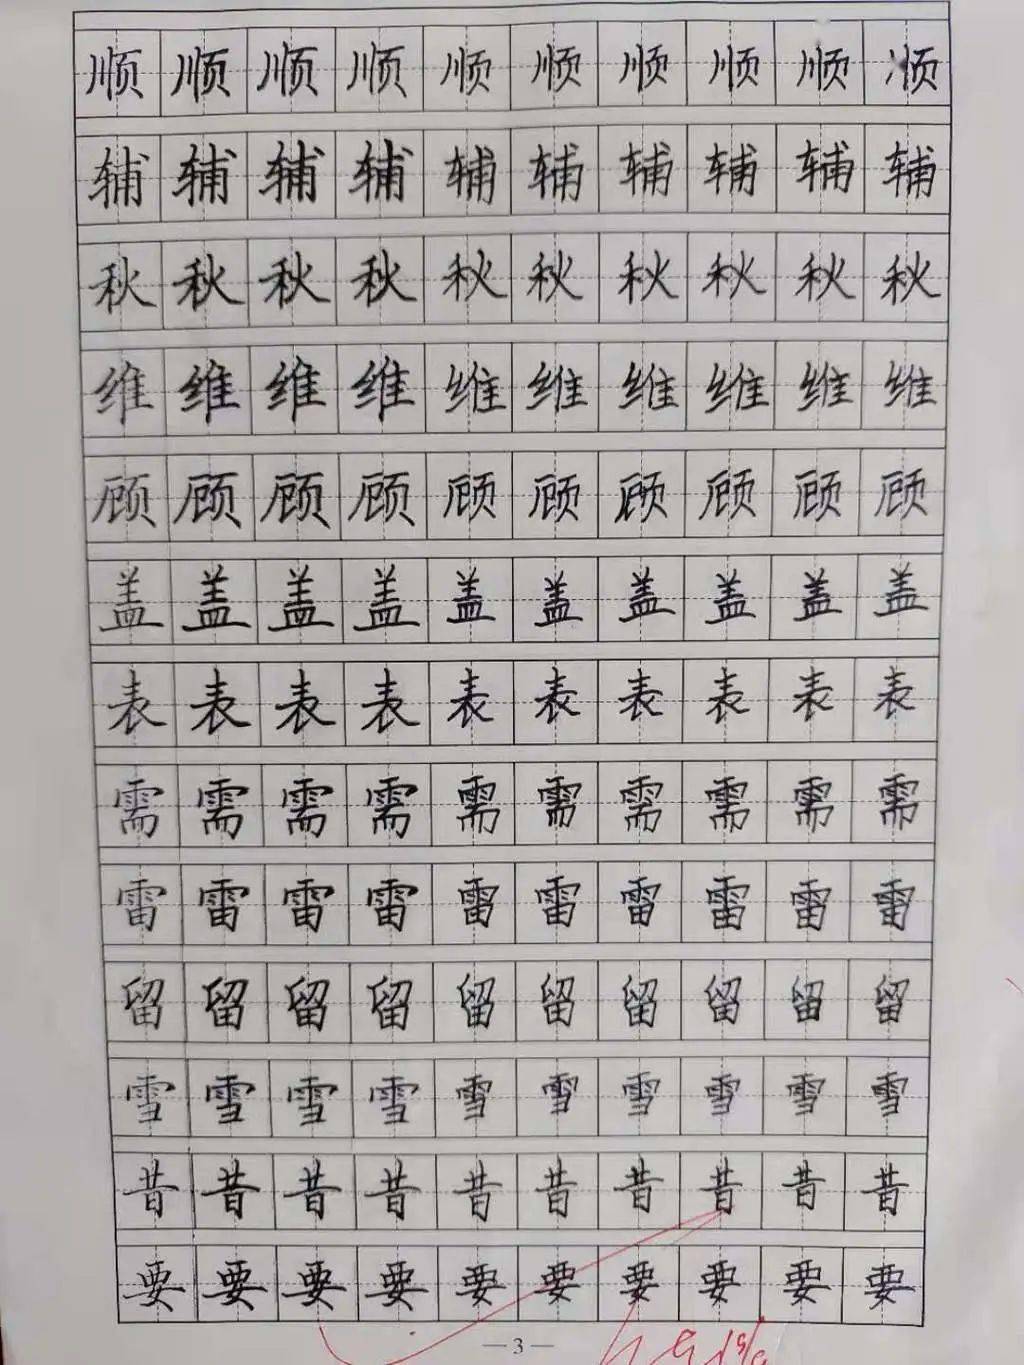 顺顺顺顺顺顺顺顺顺顺
辅辅辅辅辅辅辅辅辅辅
秋秋秋秋秋秋秋秋秋秋
维维维维维维维维维维
顾顾顾顾顾顾顾顾顾顾
盖盖盖盖盖盖盖盖盖盖
表表表表表表表表表表
需需需需需需需需需需
雷雷雷雷雷雷雷雷雷雷
留留留留留留留留留留
雪雪雪雪雪雪雪雪雪雪
昔昔昔昔昔昔昔昔昔昔
要要要要要要要要要要
— 3 —